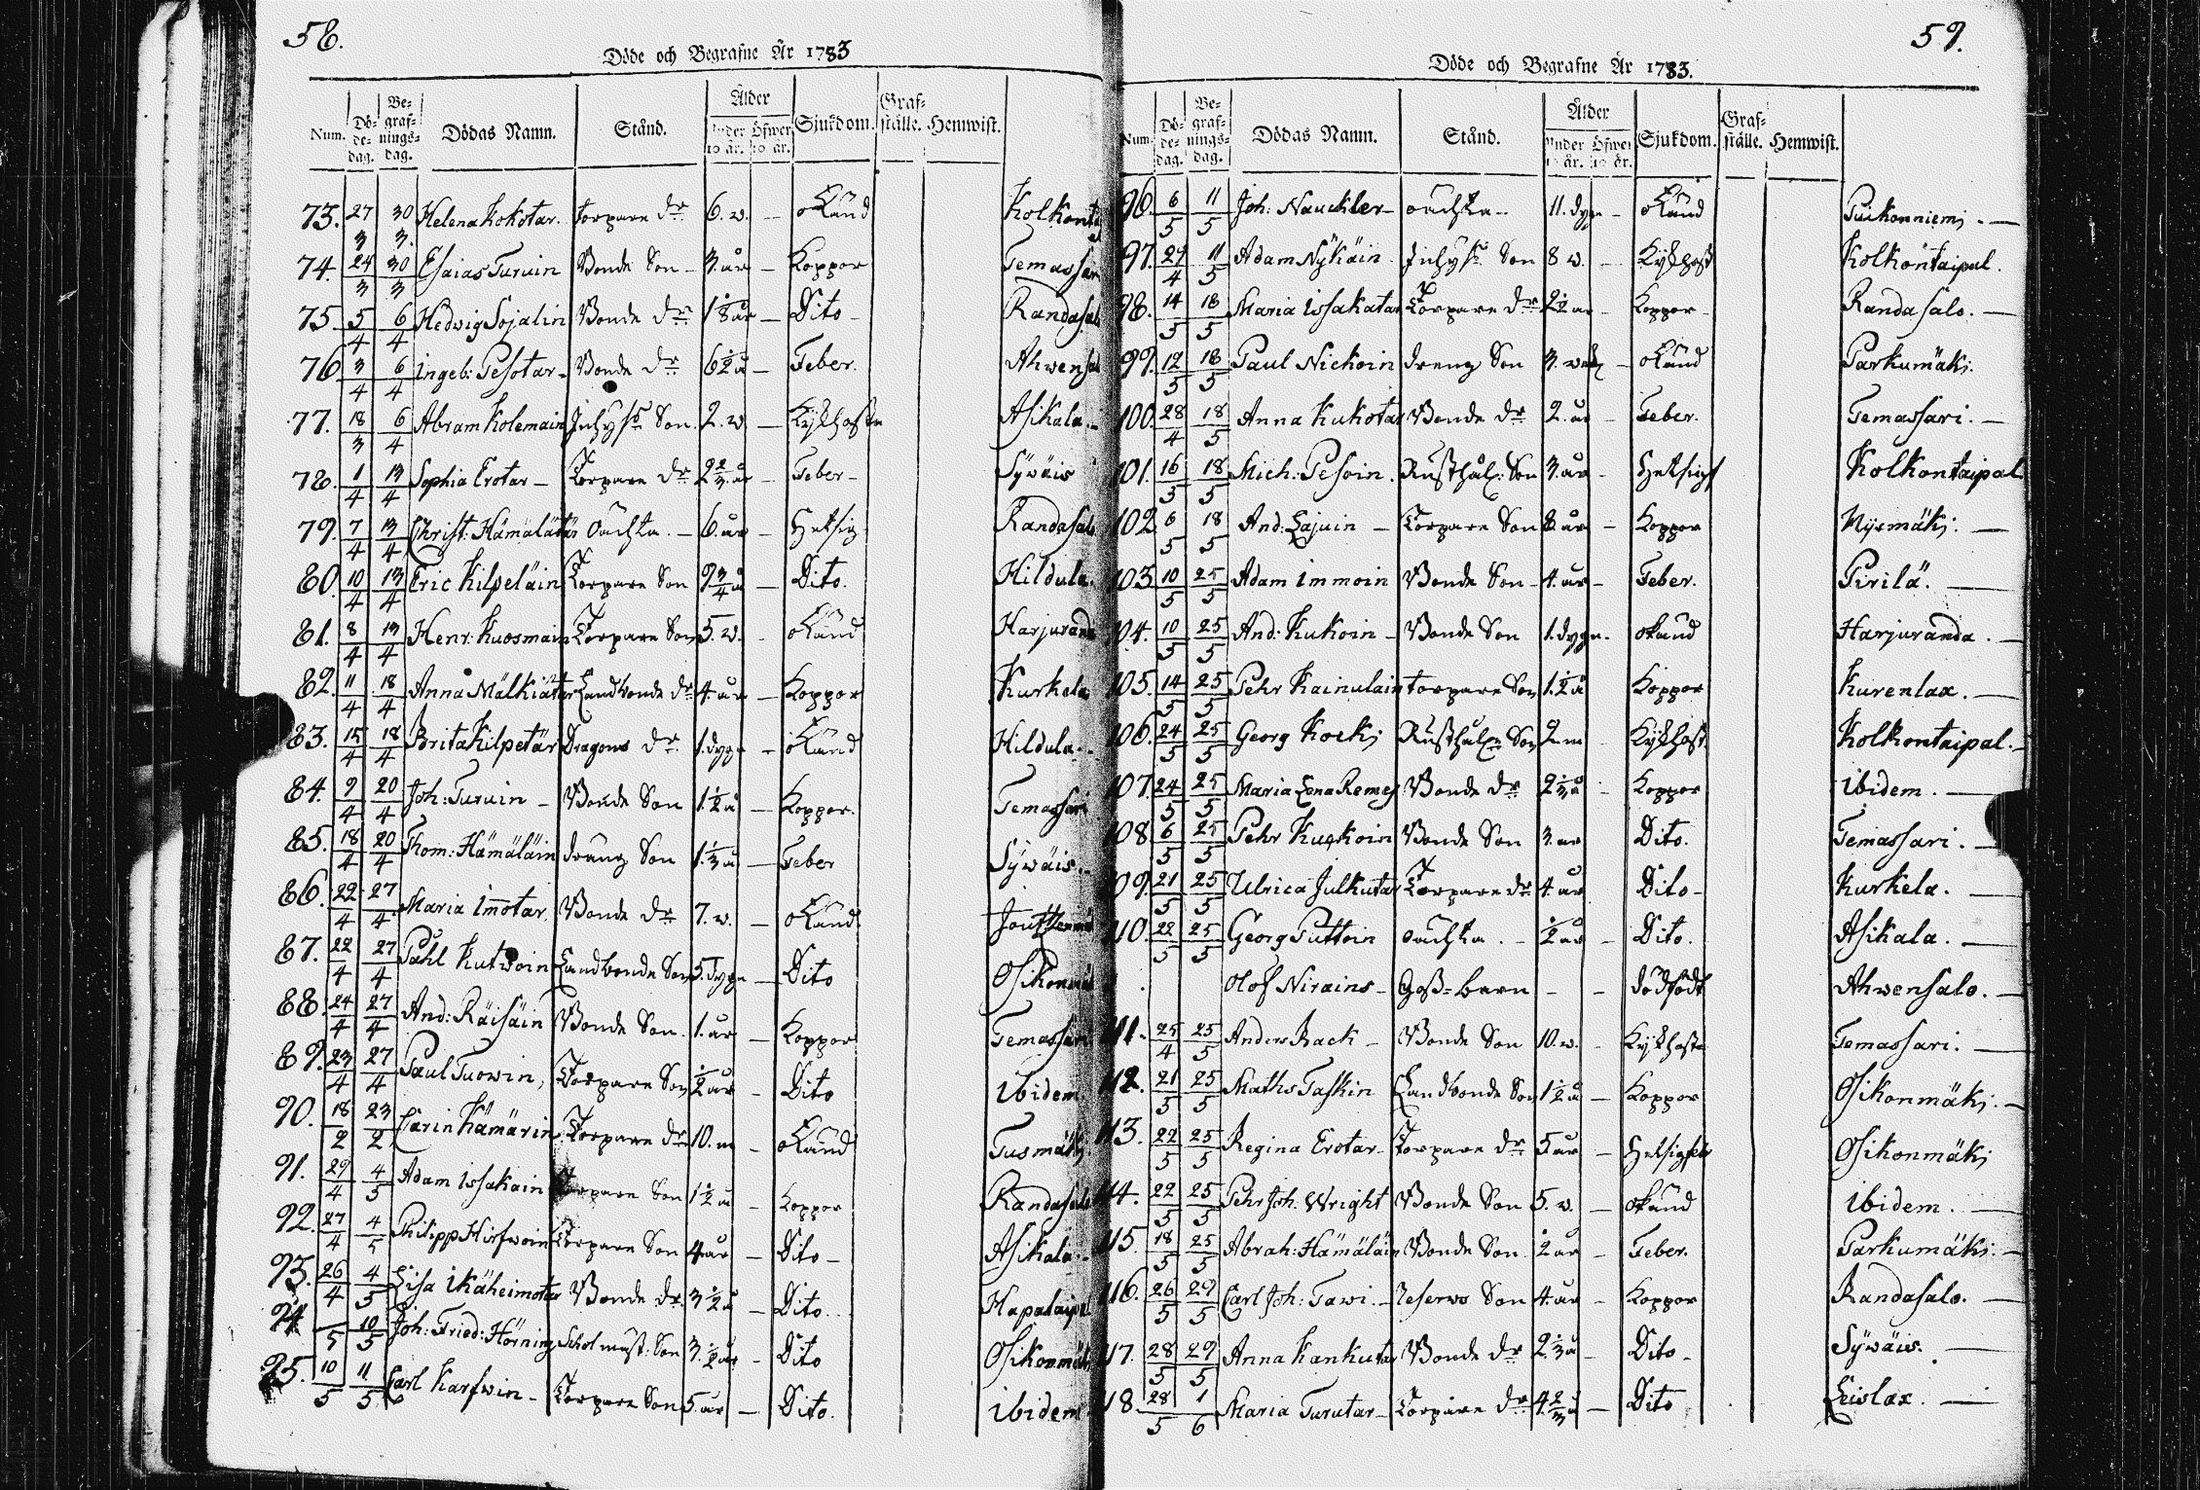 58.
Döde och Begrafne År 1783
Num. Dö-de-dag. Be-graf-nings-dag. Dödas Namn. Stånd. Ålder Under 10 år. Öfwer 10 år. Sjukdom. Graf-ställe. Hemwist.
73. 27/3 30/3. Helena Kokotar. torpare dr 6. w. — okänd Kolkonta
74. 24/3 30/3 Esaias Turuin Bonde Son — 3. år — Koppor Temassar
75. 5/4 6/4 Hedwig Sojalin Bonde dr 1/8 år — Dito — Randasal
76 3/4 6/4 ingeb: Pesotar — Bonde dr 6 1/2 å — Feber. Ahwensal
77. 18/3 6/4 Abram Kolemain Inhyss Son. 2. w. — Kikhosta Asikala. —
78. 1/4 13/4 Sophia Erotar — Torpare dr 2 2/3 år — Feber — Sÿwäis
79. 7/4 13/4 Christ: Hämälätär Oächta. — 6. år — Hetsig Randasalo
80. 10/4 13/4 Eric Kilpeläin Torpare Son 9 3/4 å — Dito. Hildula.
81. 8/4 13/4 Henr: Kuosmain Torpare Son 5. w. — okänd Harjuranda
82. 11/4 18/4 Anna Mälkiätär Landbonde dr 4. år — Koppor Kurkela
83. 15/4 18/4 Brita Kilpetär Dragons dr. 1. dygn — okänd Hildula. —
84. 9/4 20/4 Joh: Turuin — Bonde Son 1 1/2 å — Koppor. Temassari
85. 18/4 20/4 Thom: Hämäläin dräng Son 1 1/3 å — Feber Sÿwäis. —
86. 22/4 27/4 Maria Imotar. Bonde dr 7. w. — okänd
87. 22/4 27/4 Påhl Kutwoin Landbonde Son 5. dygn — Dito Osikonmäk
88. 24/4 27/4 And: Räisäin Bonde Son. 1. år — Koppor Temassari
89. 23/4 27/4 Paul Tuowin, Torpare Son 1/2 år — Dito ibidem
90. 18/2 23/2 Carin Kämärin Torpare dr 10. m — okänd Tusmäki
91. 29/4 4/5 Adam Issakain Torpare Son 1 1/2 å — Koppor Randasalo
92. 27/4 4/5 Philipp Hirfwoin Torpare Son 4 år — Dito — Asikala. —
93. 26/4 4/5 Lisa Ikäheimotar Bonde dr. 3 1/2 å — Dito — Hapataipal
94 /5 10/5 Joh: Fried: Hörning Schol mäst: Son 3. 1/2 år — Dito Osikonmäk
95. 10/5 11/5 Carl Karfwin — Torpare Son 5. år — Dito. ibidem
59.
Döde och Begrafne År 1783.
Num. Dö-de-dag. Be-graf-nings-dag. Dödas Namn. Stånd. Ålder Under 10 år. Öfwer 10 år. Sjukdom. Graf-ställe. Hemwist.
96. 6/5 11/5 Joh: Nauckler — oächta — 11. dygn — okänd Puikonniemi. —
97. 29/4 11/5 Adam Nykäin. Inhyss Son 8 w. — Kikhost Kolkontaipal.
98. 14/5 18/5 Maria Issakatar Torpare dr 2 1/2 år — Koppor — Randasalo. —
99. 12/5 18/5 Paul Nickoin dreng Son 3. wek — okänd Parkumäki.
100. 28/4 18/5 Anna Kukotar Bonde dr 2. år — Feber. Temassari. —
101. 16/5 18/5 Mich: Pesoin. Rusthål. Son 3. år — Hetsigf Kolkontaipal
102 6/5 18/5 And: Lajuin — Torpare Son 8. år — Koppor Nÿsmäki. —
103. 10/5 25/5 Adam immoin Bonde Son — 4. år — Feber. Pirilä. —
104. 10/5 25/5 And: Kukoin — Bonde Son 1. dygn. okänd Harjuranda. —
105. 14/5 25/5 Pehr Kainulain torpare Son 1. 1/2 å Koppor Kurenlax. —
106. 24/5 25/5 Georg Kocki Rusthål Son 2. m — Kikhost. Kolkontaipal. —
107. 24/5 25/5 Maria Lena Remes Bonde dr 2 1/3 å — Koppor ibidem. —
108. 6/5 25/5 Pehr Kuckoin Bonde Son 3. år Dito. Temassari. —
109. 21/5 25/5 Ulrica Julkutar Torpare dr 4. år Dito — Kurkela. —
110. 22/5 25/5 Georg Puttoin oächta. — 1/2 år — Dito. Asikala. —
Olof Nirains — Goss-barn — — dödfödt Ahwensalo. —
111. 25/4 25/5 Anders Rack — Bonde Son 10. w. — Kikhosta Temassari. —
112. 21/5 25/5 Maths Taskin Landbonde Son 1 1/2 å — Koppor Osikonmäki. —
113. 22/5 25/5 Regina Erotar — Torpare dr 5 år — Hetsigfeb Osikonmäki
114. 22/5 25/5 Pehr Joh. Wright Bonde Son 5. w. — okänd ibidem. —
115. 18/5 25/5 Abrah: Hämäläin Bonde Son. 1/2 år — Feber. Parkumäki. —
116. 26/5 29/5 Carl Joh: Tawi. — Reserws Son 4. år — Koppor Randasalo. —
117. 28/5 29/5 Anna Kankutar Bonde dr 2. 1/3 å — Dito — Sÿwäis. —
118. 28/5 1/6 Maria Turutar — Torpare dr 4. 2/3 å — Dito Leislax. —